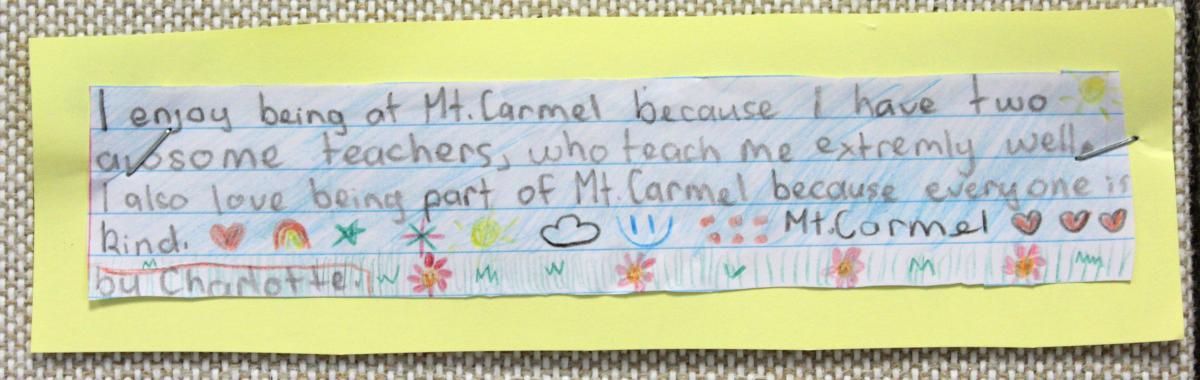 I enjoy being at Mt. Carmel because I have two
awsome teachers, who teach me extremly well.
I also love being part of Mt. Carmel because everyone is
kind. Mt. Carmel
by Charlotte.